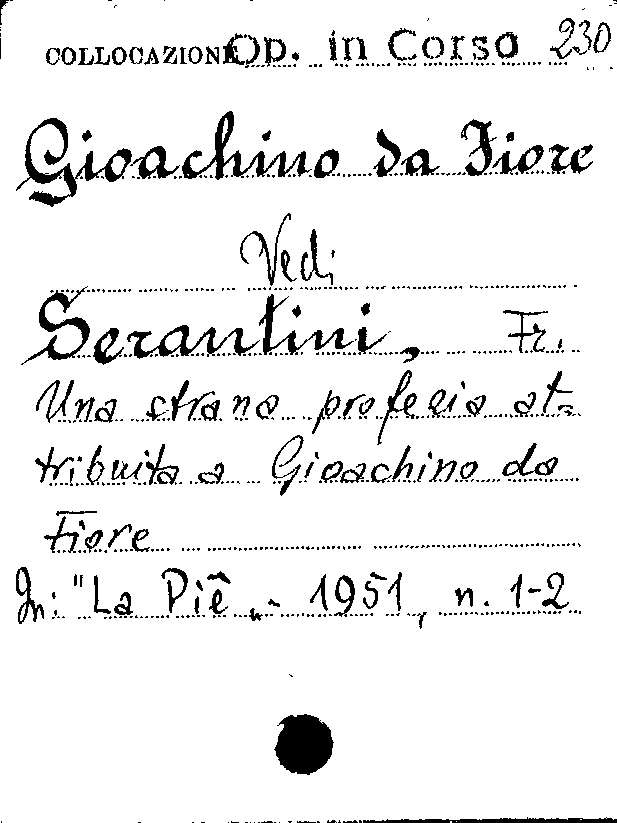 COLLOCAZIONE Op. in Corso 230
Gioachino da Fiore
Vedi
Serantini, Fr.
Una strana profezia at=
tribuita a Gioachino da
Fiore
In: "La Piê„- 1951, n. 1-2